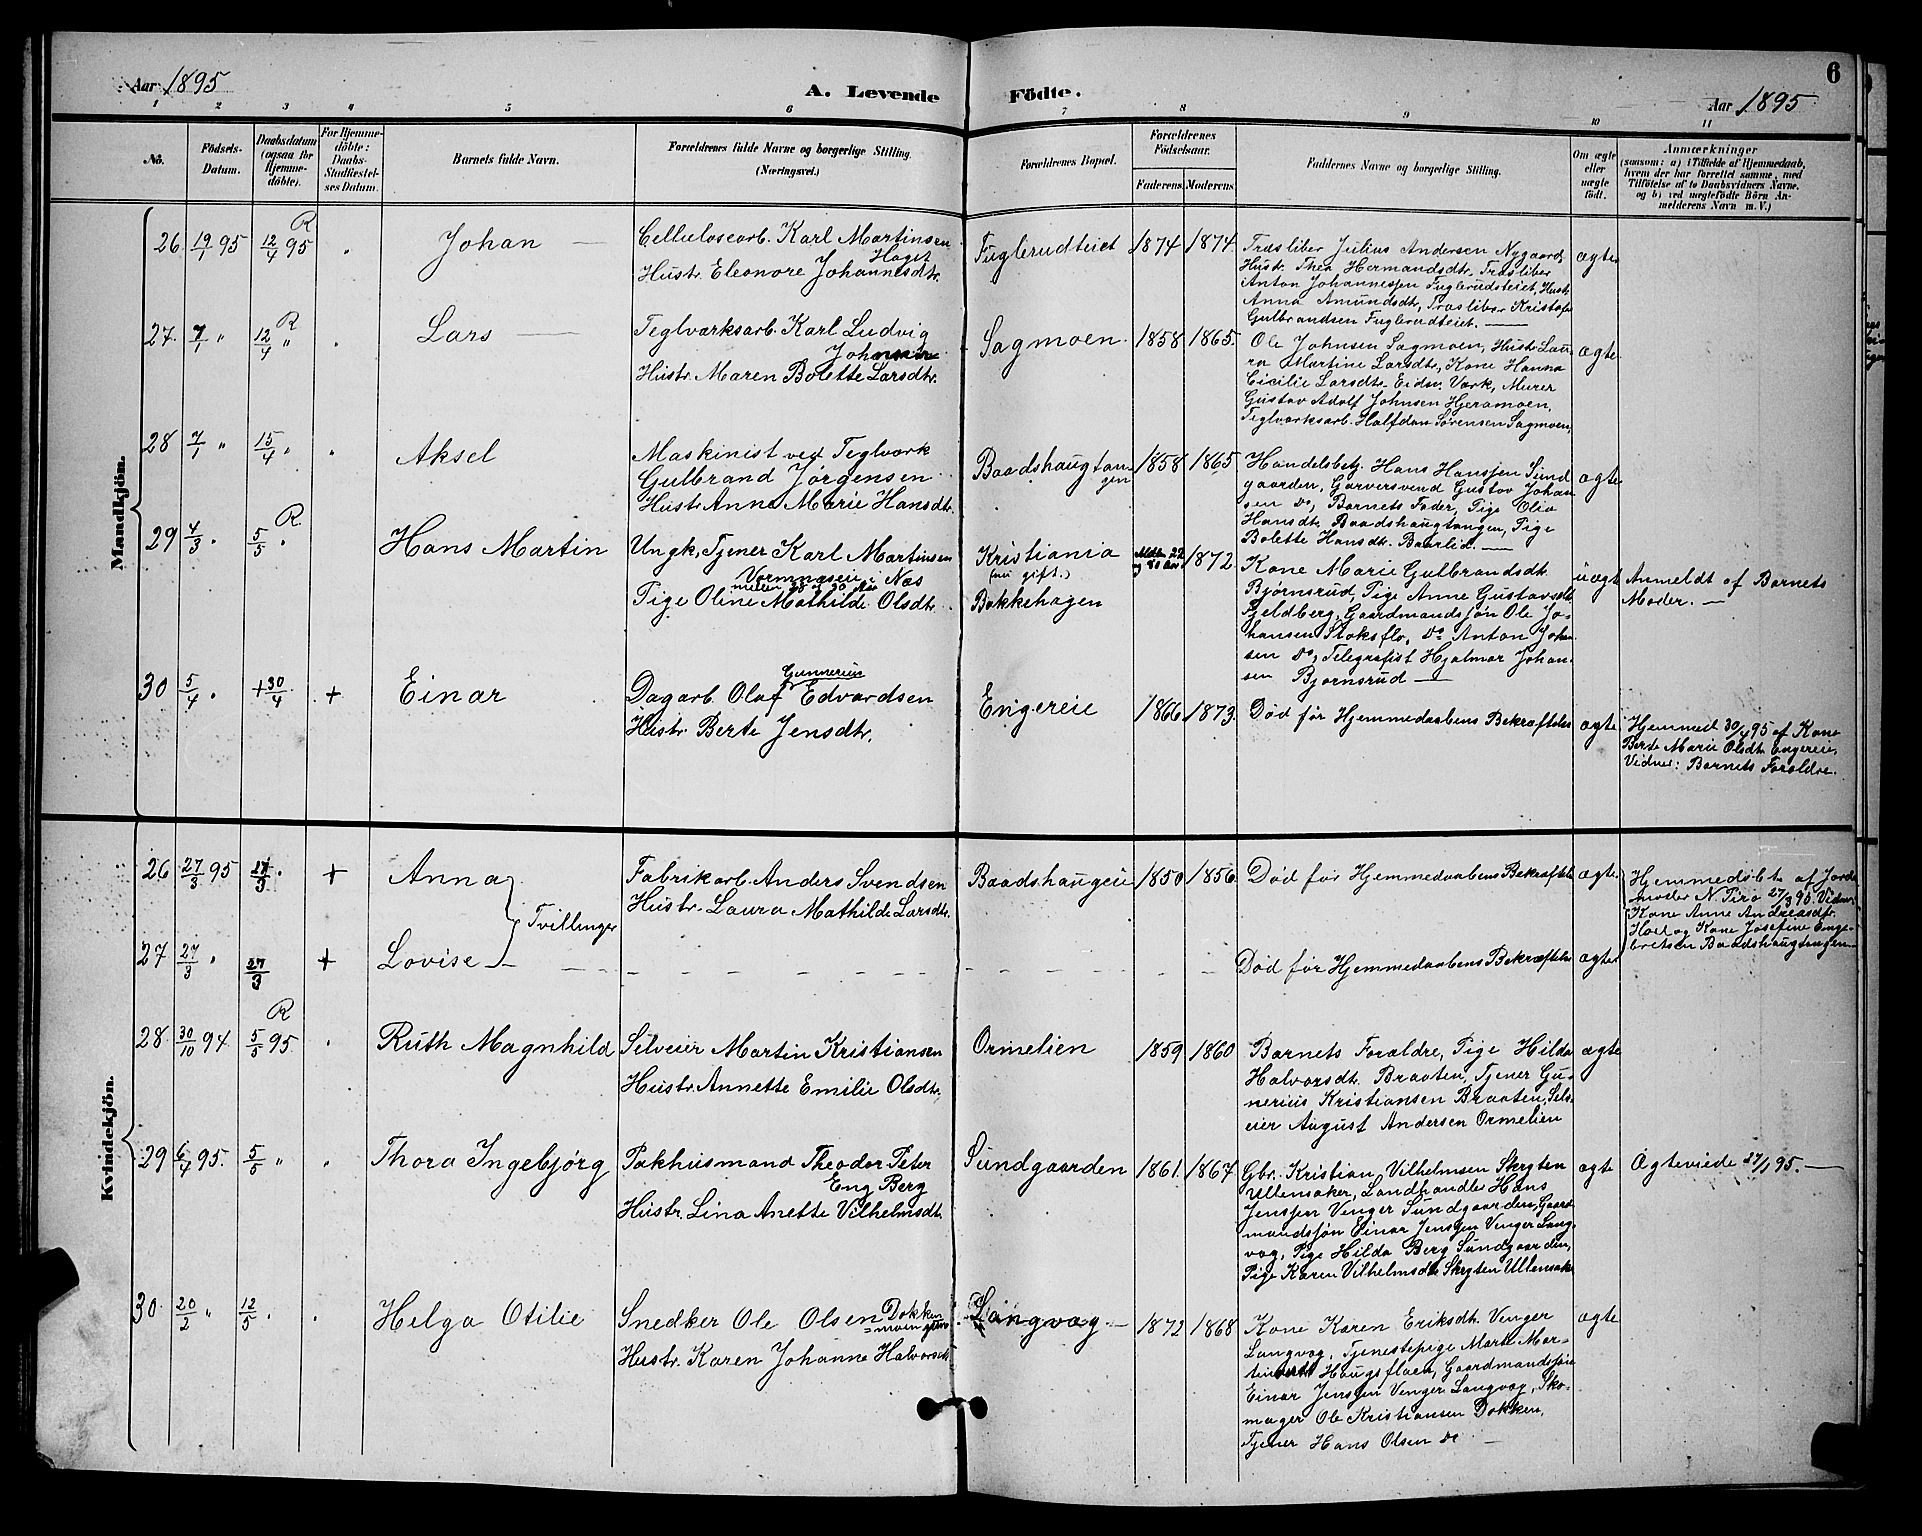 Aar 1895
A. Levende
Fødte.
Aar 1895
6
1 2 3 4 5 6 7 8 9 10 11
No.
Fødsels-
Datum.
Daabsdatum
(ogsaa for
Hjemme-
døbte).
For Hjemme-
døbte:
Daabs-
Stadfæstel-
ses Datum.
Barnets fulde Navn.
Forældrenes fulde Navne og borgerlige Stilling.
(Næringsvei.)
Forældrenes Bopæl.
Forældrenes
Fødselsaar.
Faderens. Moderens.
Faddernes Navne og borgerlige Stilling.
Om ægte
eller
uægte
født.
Anmærkninger
(saasom: a) i Tilfælde af Hjemmedaab,
hvem der har forrettet samme, med
Tilføielse af to Daabsvidners Navne.
og b) ved uægtefødte Børn An-
melderens Navn m. V.)
Mandkjön.
26 19/1 95 12/4 95 R " Johan —
Cellulosearb. Karl Martinsen
Haget
Hustr. Eleonore Johannesdtr.
Fuglerudteiet 1874 1874
Træsliber Julius Andersen Nygaard,
Hustr. Thea Hermandsdtr, Træsliber
Anton Johannessen Fuglerudteiet, Hustr.
Anna Amundsdtr, Træsliber Kristofer
Gulbrandsen Fuglerudteiet. —
ægte
27. 7/1 " 12/4 " R " Lars —
Teglværksarb. Karl Ludvig
Johnsen
Hustr. Maren Bolette Larsdtr.
Sagmoen 1858 1865.
Ole Johnsen Sagmoen, Hustr. Lau-
ra Martine Larsdtr, Kone Hanna
Cicilie Larsdtr. Eidsv. Værk, Murer
Gustav Adolf Johnsen Hjeramoen,
Teglværksarb. Halfdan Sørensen Sagmoen,
ægte
28 7/1 " 15/4 " " Aksel
Maskinist ved Teglværk
Gulbrand Jørgensen
Hustr. Anne Marie Hansdtr.
Baadshaugtan
gen
1858 1865
Handelsbetj. Hans Hanssen Sund
gaarden, Garversvend Gustav Johan
sen Do, Barnets Fader, Pige Olia
Hansdtr. Baadshaugtangen, Pige
Bolette Hansdtr. Baarlid. —
ægte
29 4/3 " 5/5 " R Hans Martin
Ungk, Tjener Karl Martinsen
Vormnæsen i Næs
mellem 28 og 30 Aar
Pige Oline Mathilde Olsdtr.
Kristiania
(nu gift.)
Bakkehagen
1872
Kone Marie Gulbrandsdtr.
Bjørnsrud, Pige Anne Gustavsdtr.
Fjeldberg, Gaardmandssøn Ole Jo-
hansen Stoksflo, Do Anton Johan
sen Do, Telegrafist Hjalmar Johan-
sen Bjørnsrud —
uægt
Anmeldt af Barnets
Moder. —
30 5/4 " +30/4 + Einar
Gunnerius
Dagarb. Olaf Edvardsen
Hustr. Berte Jensdtr.
Engereie 1866 1873.
Død før Hjemmedaabens Bekræftelse
ægte
Hjemmed 30/4 95 af Kone
Berte Marie Olsdtr. Engereie,
Vidner: Barnets Forældre.
Kvindekjön.
26 27/3 95 27/3 " + Anna
Tvillinger
Fabrikarb. Anders Svendsen
Hustr. Laura Mathilde Larsdtr.
Baadshaugeie 1850 1856.
Død før Hjemmedaabens Bekræftelse
ægte
Hjemmedøbt af Jorde
moder N. Tirø 27/3 95. Vidner
Kone Anne Andreasdtr
Hoel og Kone Josefine Enge-
bretsen Baadshaugtangen —
27 27/3 " 27/3 + Lovise —
Død før Hjemmedaabens Bekræftelse
ægte
28 30/10 94 5/5 95 R " Ruth Magnhild
Selveier Martin Kristiansen
Hustr. Annette Emilie Olsdtr.
Ormelien 1859 1860
Barnets Forældre, Pige Hilda
Halvorsdtr. Braaten, Tjener Gu-
nerius Kristiansen Braaten, Selv-
eier August Andersen Ormelien
ægte
29 6/4 95. 5/5 " " Thora Ingebjørg
Pakhusmand Theodor Peter
Eng Berg
Hustr. Lina Anette Vilhelmsdtr.
Sundgaarden 1861. 1864
Gbr. Kristian Vilhelmsen Skrytten
Ullensaker, Landhandler Hans
Jenssen Venger Sundgaarden, Gaard
mandssøn Einar Jenssen Venger Lang
vag, Pige Hilda Berg Sundgaarden,
Pige Karen Vilhelmsdtr Skrytten Ullensaker
ægte
Ægteviede 27/1 95. —
30. 20/2 " 12/5 " " Helga Otilie
Snedker Ole Olsen Dokken
Hustr. Karen Johanne Halvorsdtr.
Langvag — 1872 1868
Kone Karen Eriksdtr. Venger
Langvag, Tjenestepige Marte Mar-
tinsdtr. Haugsflaen, Gaardmandssøn
Einar Jenssen Venger Langvag, Sko-
mager Ole Kristiansen Dokken,
Tjener Hans Olsen Do —
ægte